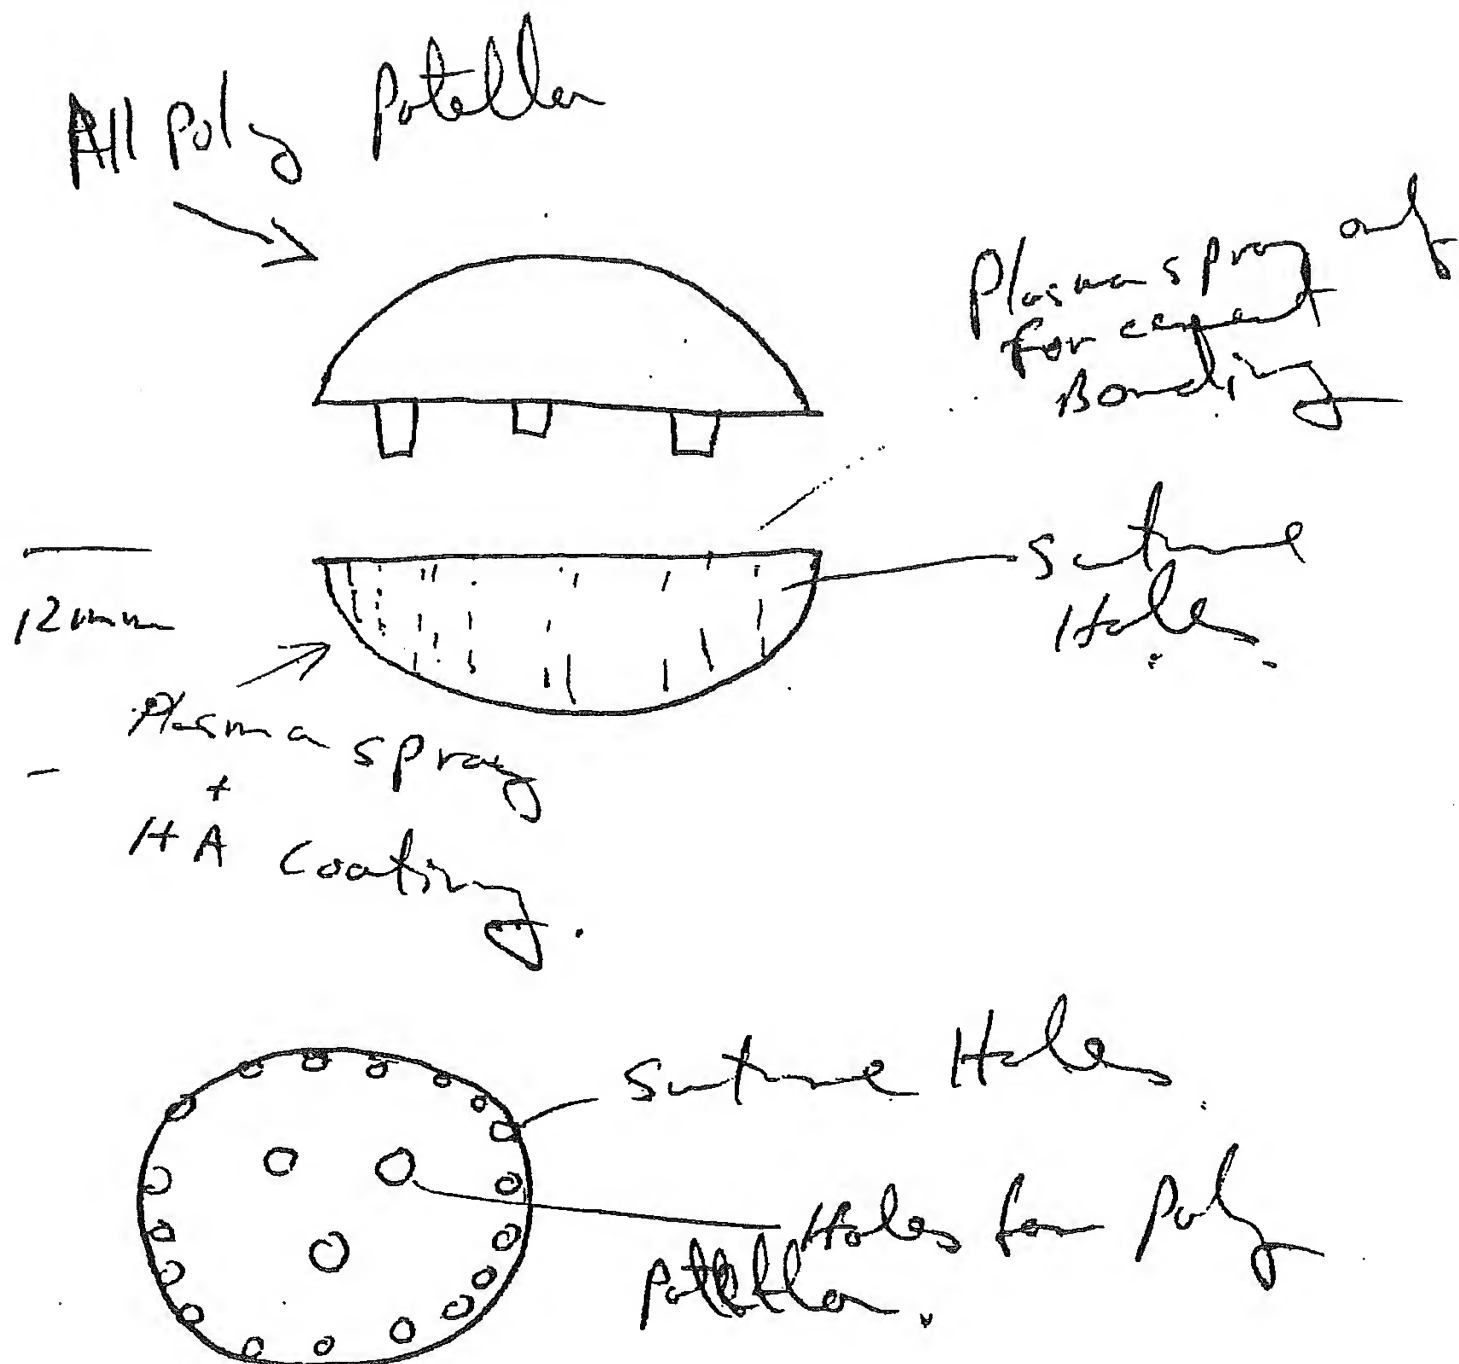 All Poly Patella
Plasma spray only
for cement
Bonding
Suture
Holes.
12mm
Plasma spray
+
HA Coating.
Suture Holes.
Holes for Poly
Patella.